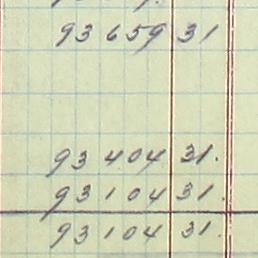 93 659 31
93 404 31.
93 104 31.
93 104 31.